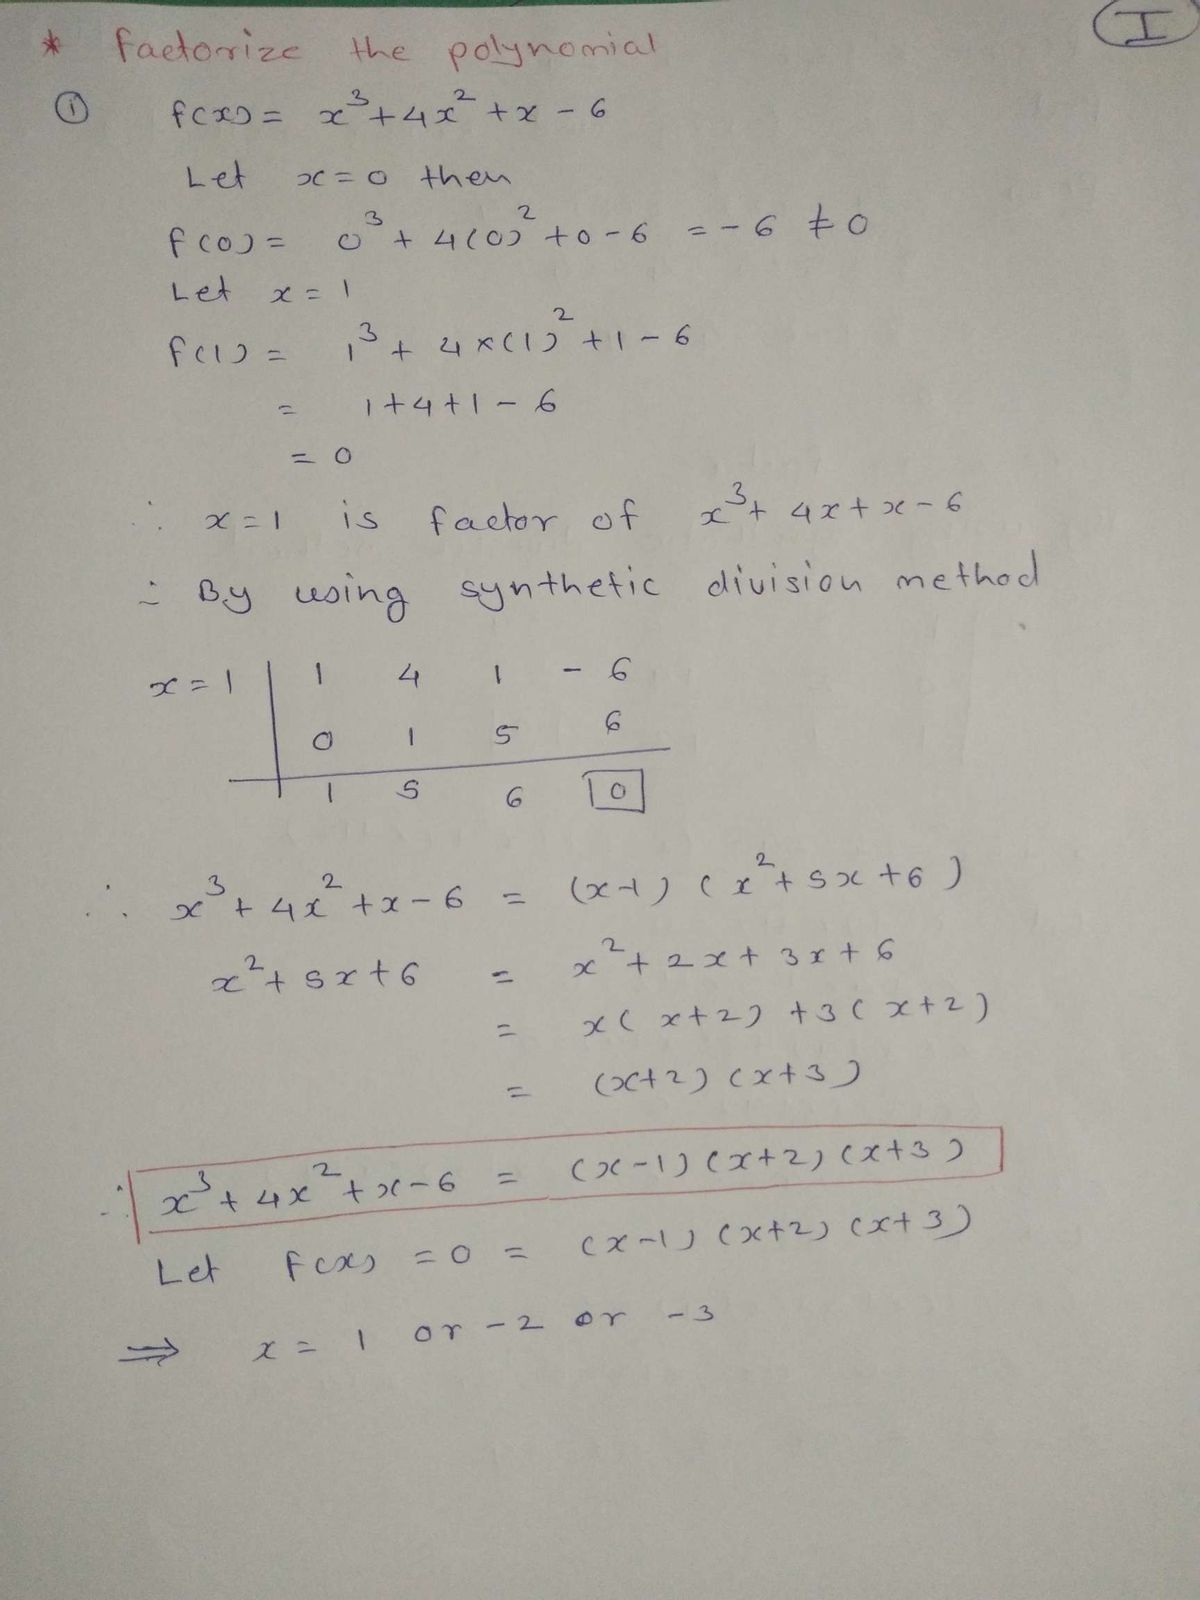 I
* Factorize the polynomial
① f(x) = x³ + 4x² + x - 6
Let x = 0 then
f(0) = 0³ + 4(0)² + 0 - 6 = - 6 ≠ 0
Let x = 1
f(1) = 1³ + 4×(1)² + 1 - 6
= 1 + 4 + 1 - 6
= 0
∴ x = 1 is factor of x³ + 4x + x - 6
∴ By using synthetic division method
x = 1 | 1 4 1 - 6
0 1 5 6
1 5 6 0
∴ x³ + 4x² + x - 6 = (x-1) (x² + 5x + 6)
x² + 5x + 6 = x² + 2x + 3x + 6
= x(x+2) + 3(x+2)
= (x+2) (x+3)
∴ x³ + 4x² + x - 6 = (x-1) (x+2) (x+3)
Let f(x) = 0 = (x-1) (x+2) (x+3)
⇒ x = 1 or -2 or -3